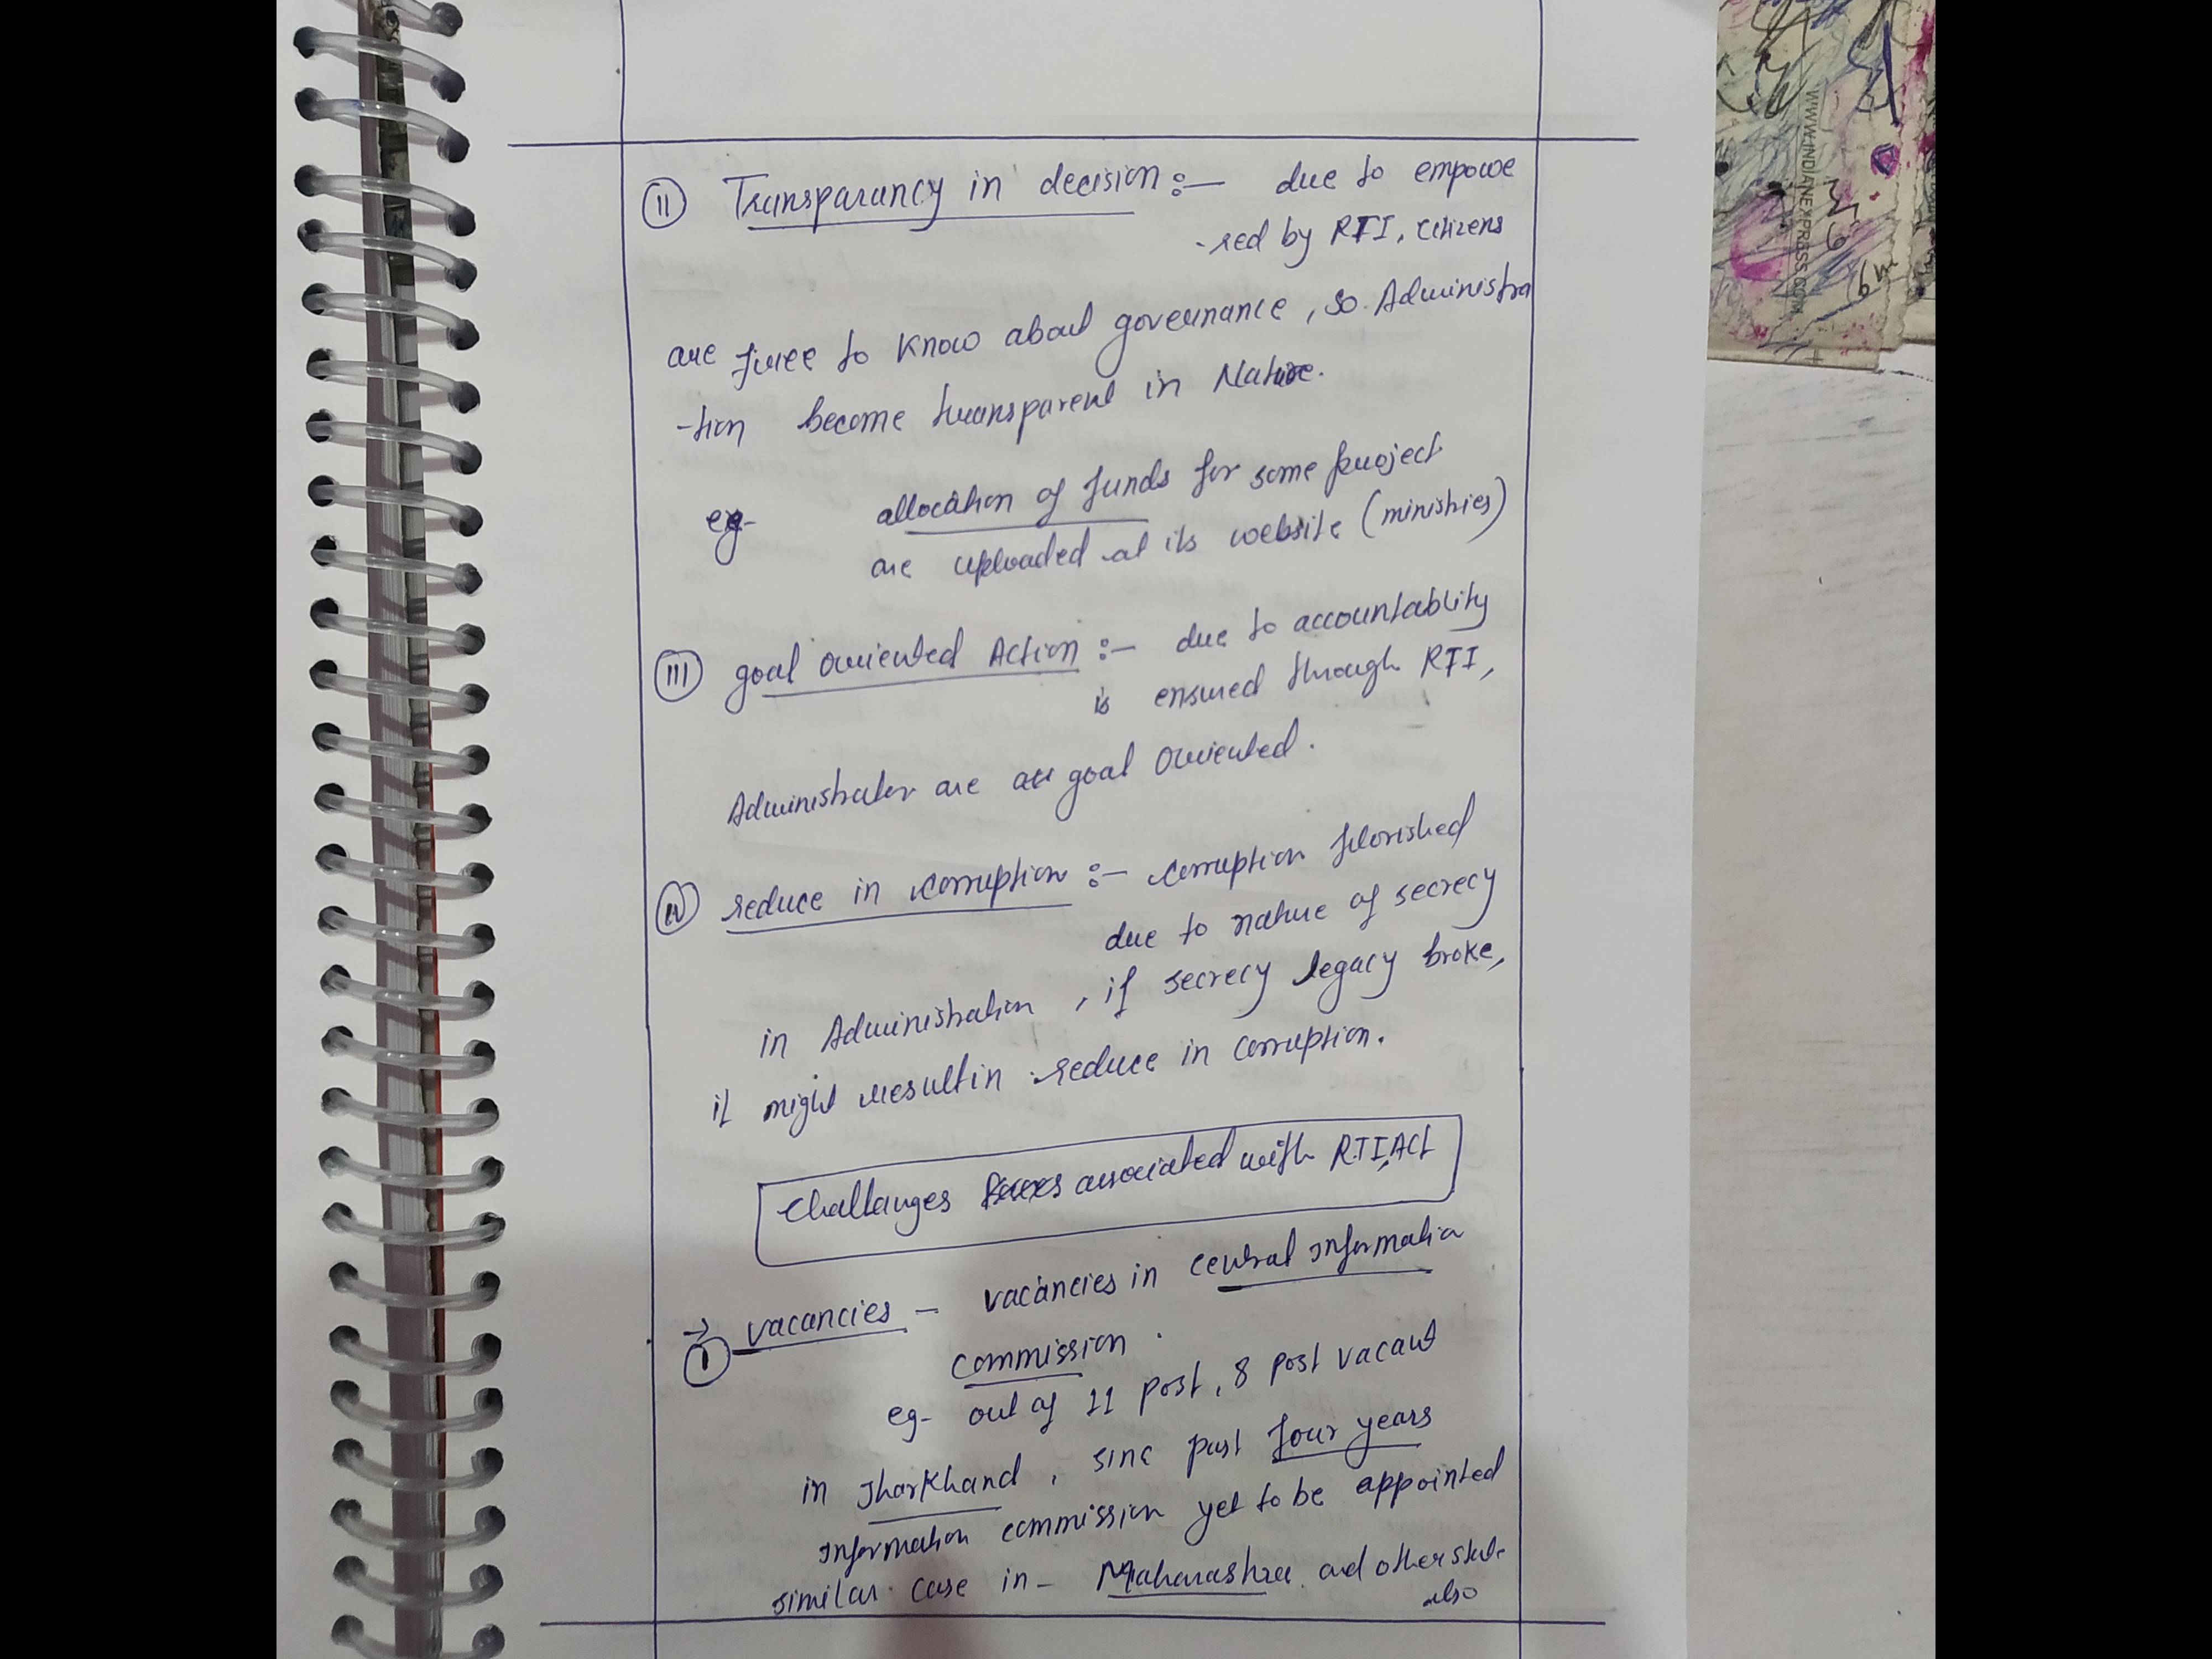 (II) Transparancy in decision :- due to empowe
-red by RTI, citizens
are free to know about governance, so Administra
-tion become transparent in Nature.
eg- allocation of funds for some project
are uploaded at its website (ministries)
(III) goal oriented Action :- due to accountablity
is ensured through RTI,
Administrater are goal oriented.
(IV) reduce in corruption :- corruption florished
due to nature of secrecy
in Administration, if secrecy legacy broke,
it might result in reduce in corruption.
Challanges associated with RTI, Act
→ (1) vacancies - vacancies in central Informatio
commission.
eg- out of 11 post, 8 post vacant
in Jharkhand, sinc past four years
Information commission yet to be appointed
similar case in - Maharashra and other state
also
WWW.INDIANEXPRESS.COM